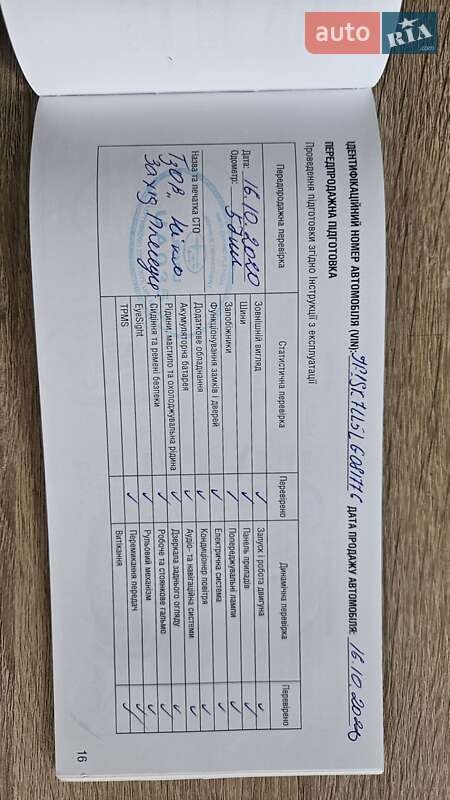 auto RIA .com
ІДЕНТИФІКАЦІЙНИЙ НОМЕР АВТОМОБІЛЯ (VIN): ДАТА ПРОДАЖУ АВТОМОБІЛЯ: 16.10.2020
ПЕРЕДПРОДАЖНА ПІДГОТОВКА
Проведення підготовки згідно Інструкції з експлуатації
Передпродажна перевірка
Дата: 16.10.2020
Одометр: 5
Назва та печатка СТО
ТзОВ
Захід
Статистична перевірка Перевірено Динамічна перевірка Перевірено
Зовнішній вигляд ✓ Запуск і робота двигуна ✓
Шини ✓ Панель приладів ✓
Запобіжники ✓ Попереджувальні лампи ✓
Функціонування замків і дверей ✓ Електрична система ✓
Додаткове обладнання ✓ Кондиціонер повітря ✓
Акумуляторна батарея ✓ Аудіо- та навігаційна системи ✓
Рідини, мастило та охолоджувальна рідина ✓ Дзеркала заднього огляду ✓
Сидіння та ремені безпеки ✓ Робоче та стоянкове гальмо ✓
EyeSight ✓ Рульовий механізм ✓
TPMS ✓ Перемикання передач ✓
Витікання ✓
16